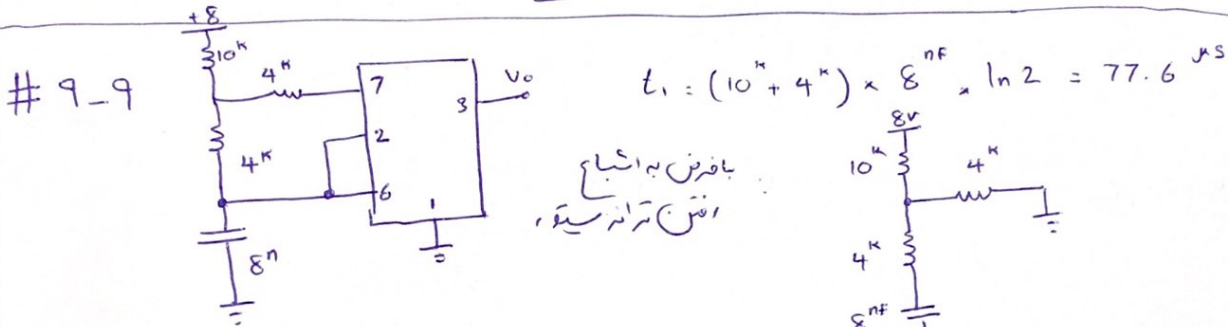 # 9-9
+8
10ᴷ
4ᴷ
4ᴷ
8ⁿ
7
2
6
1
3
Vo
t₁ = (10ᴷ + 4ᴷ) × 8ⁿᶠ × ln 2 = 77.6 μs
با فرض به اشباع
رفتن ترانزیستور
8v
10ᴷ
4ᴷ
4ᴷ
8ⁿᶠ